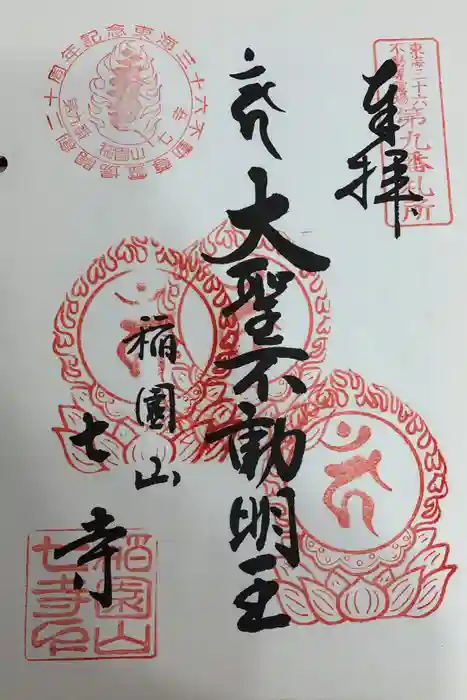 東海三十六
不動尊霊場
第九番札所
奉拝
大聖不動明王
稲園山
七寺
東海三十六不動尊霊場開創二十周年記念
稲園山
七寺印